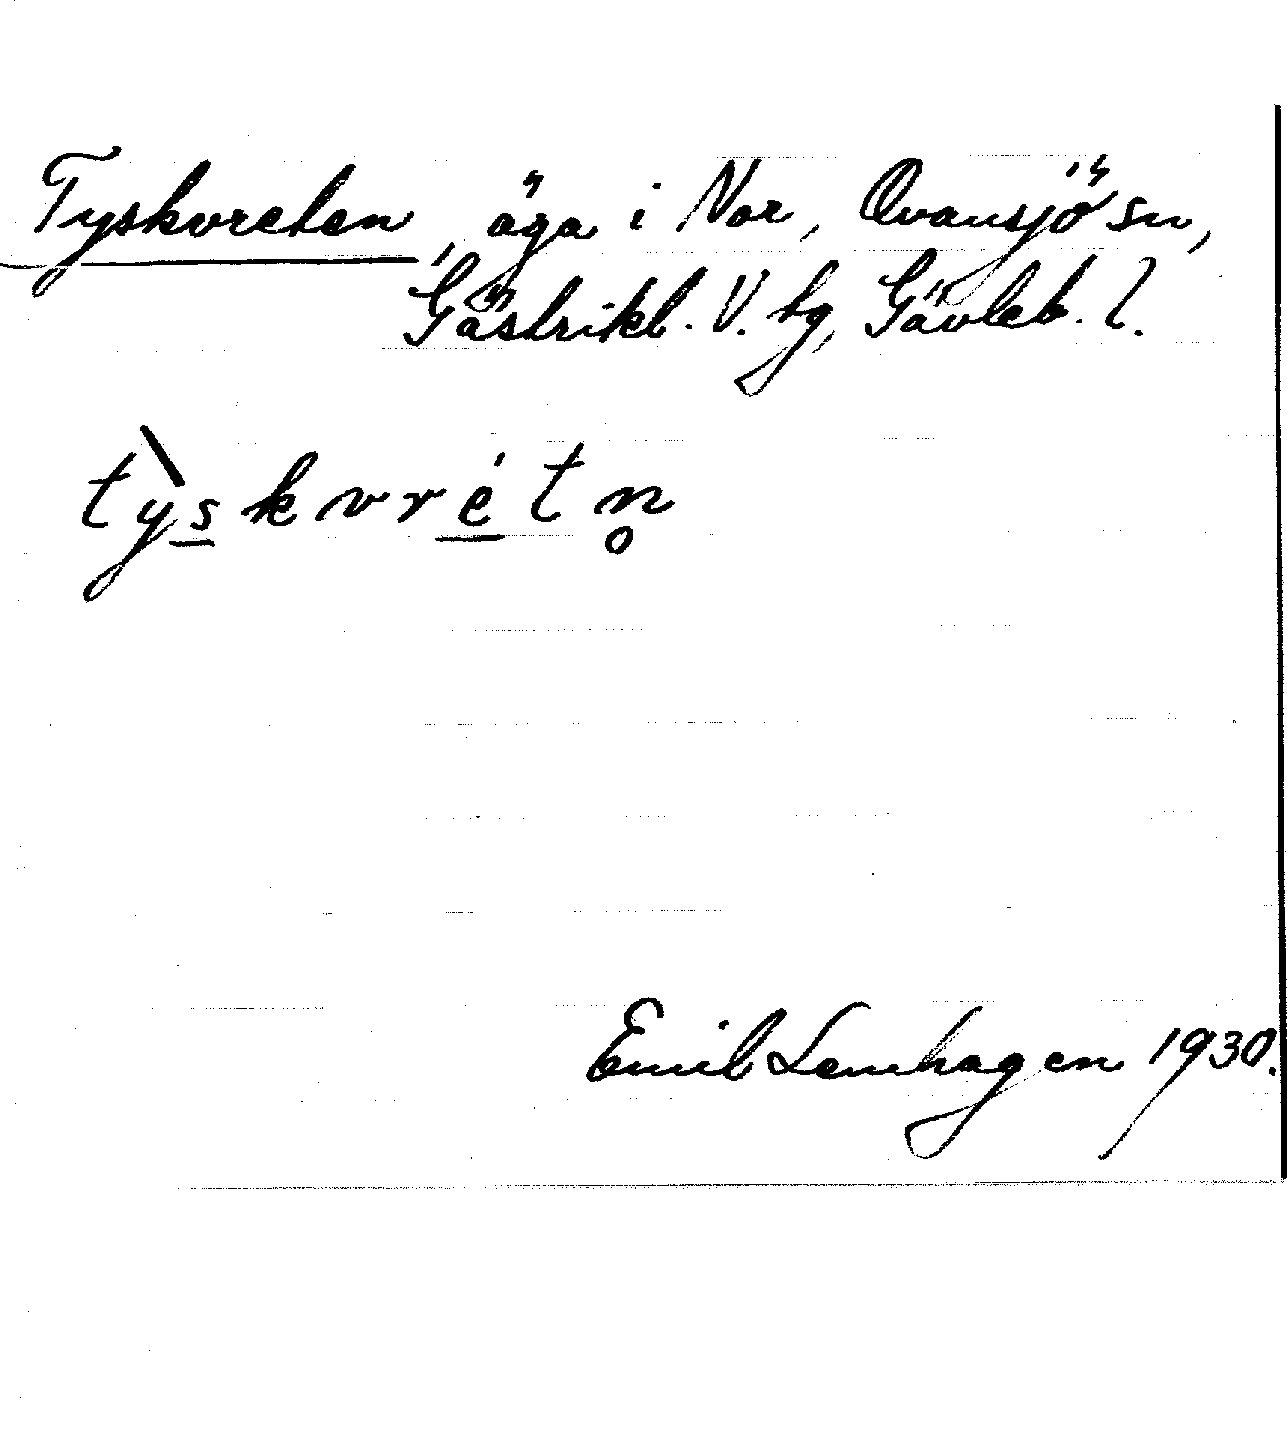 Tyskvreten, äga i Nor, Ovansjö sn,
Gästrikl. V. tg, Gävleb. l.
tỳs̲kvré̲tn̥
Emil Lemhagen 1930.